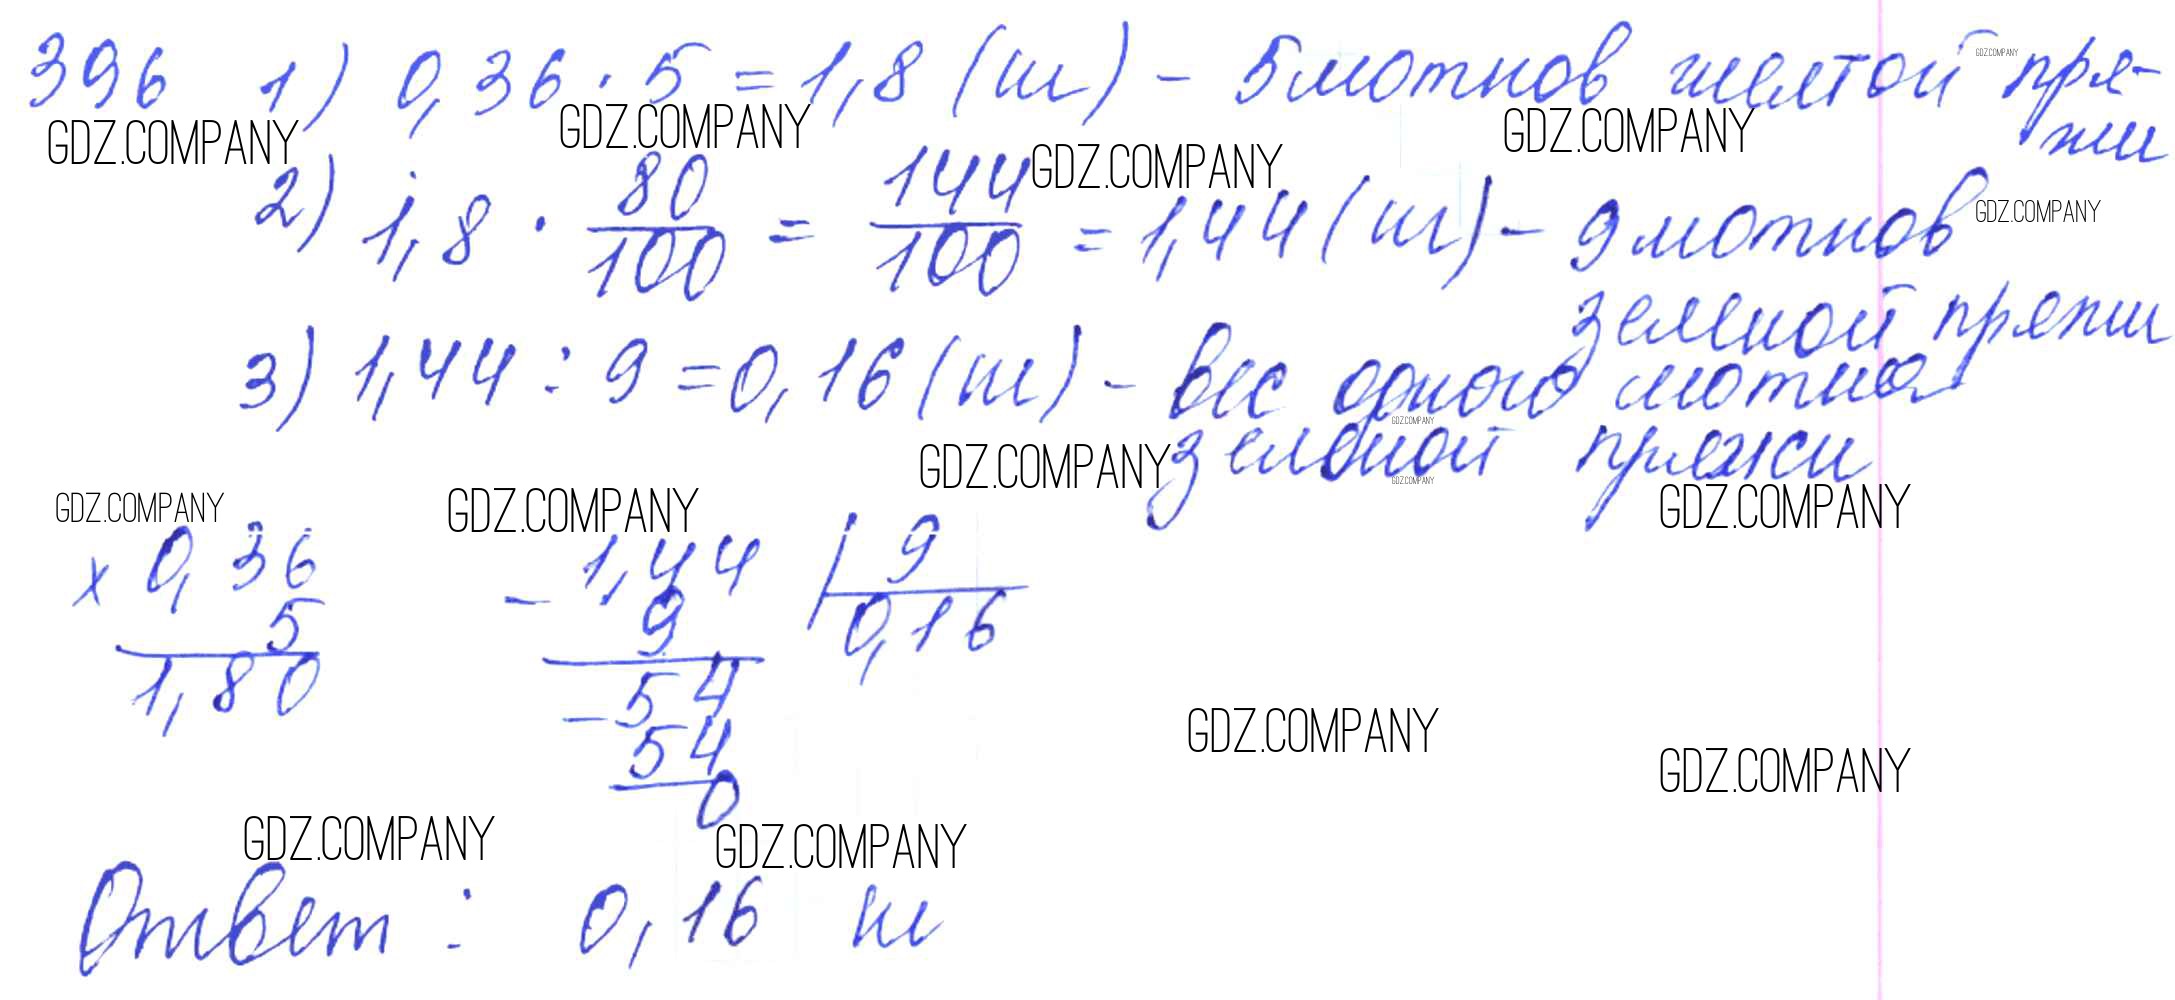 396 1) 0,36 · 5 = 1,8 (кг) - 5 мотков желтой пря-
GDZ.COMPANY
GDZ.COMPANY GDZ.COMPANY GDZ.COMPANY жи
GDZ.COMPANY
2) 1,8 · 80/100 = 144/100 = 1,44 (кг) - 9 мотков
GDZ.COMPANY
зеленой пряжи
3) 1,44 : 9 = 0,16 (кг) - вес одного мотка
GDZ.COMPANY
зеленой пряжи
GDZ.COMPANY
GDZ.COMPANY
GDZ.COMPANY GDZ.COMPANY GDZ.COMPANY
× 0,36 - 1,44 | 9
5 9 0,16
1,80 - 54
54
0
GDZ.COMPANY
GDZ.COMPANY
GDZ.COMPANY GDZ.COMPANY
Ответ : 0,16 кг